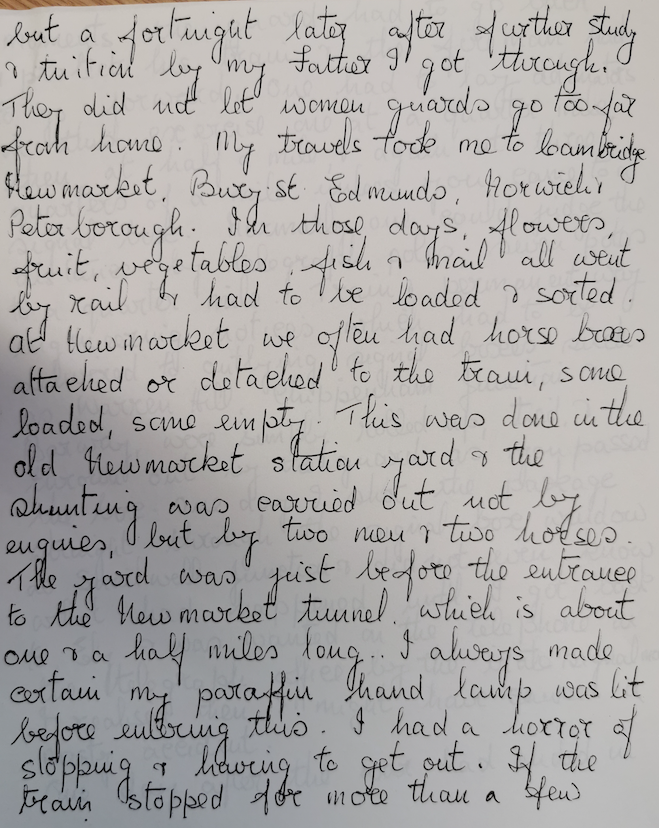 but a fortnight later after further study
& tuition by my Father I got through.
They did not let women guards go too far
from home. My travels took me to Cambridge
Newmarket, Bury st Edmunds, Norwich &
Peterborough. In those days, flowers,
fruit, vegetables, fish & mail all went
by rail & had to be loaded & sorted.
At Newmarket we often had horse boxes
attached or detached to the train, some
loaded, some empty. This was done in the
old Newmarket station yard & the
shunting was carried out not by
engines, but by two men & two horses.
The yard was just before the entrance
to the Newmarket tunnel, which is about
one & a half miles long.. I always made
certain my paraffin hand lamp was lit
before entering this. I had a horror of
stopping & having to get out. If the
train stopped for more than a few